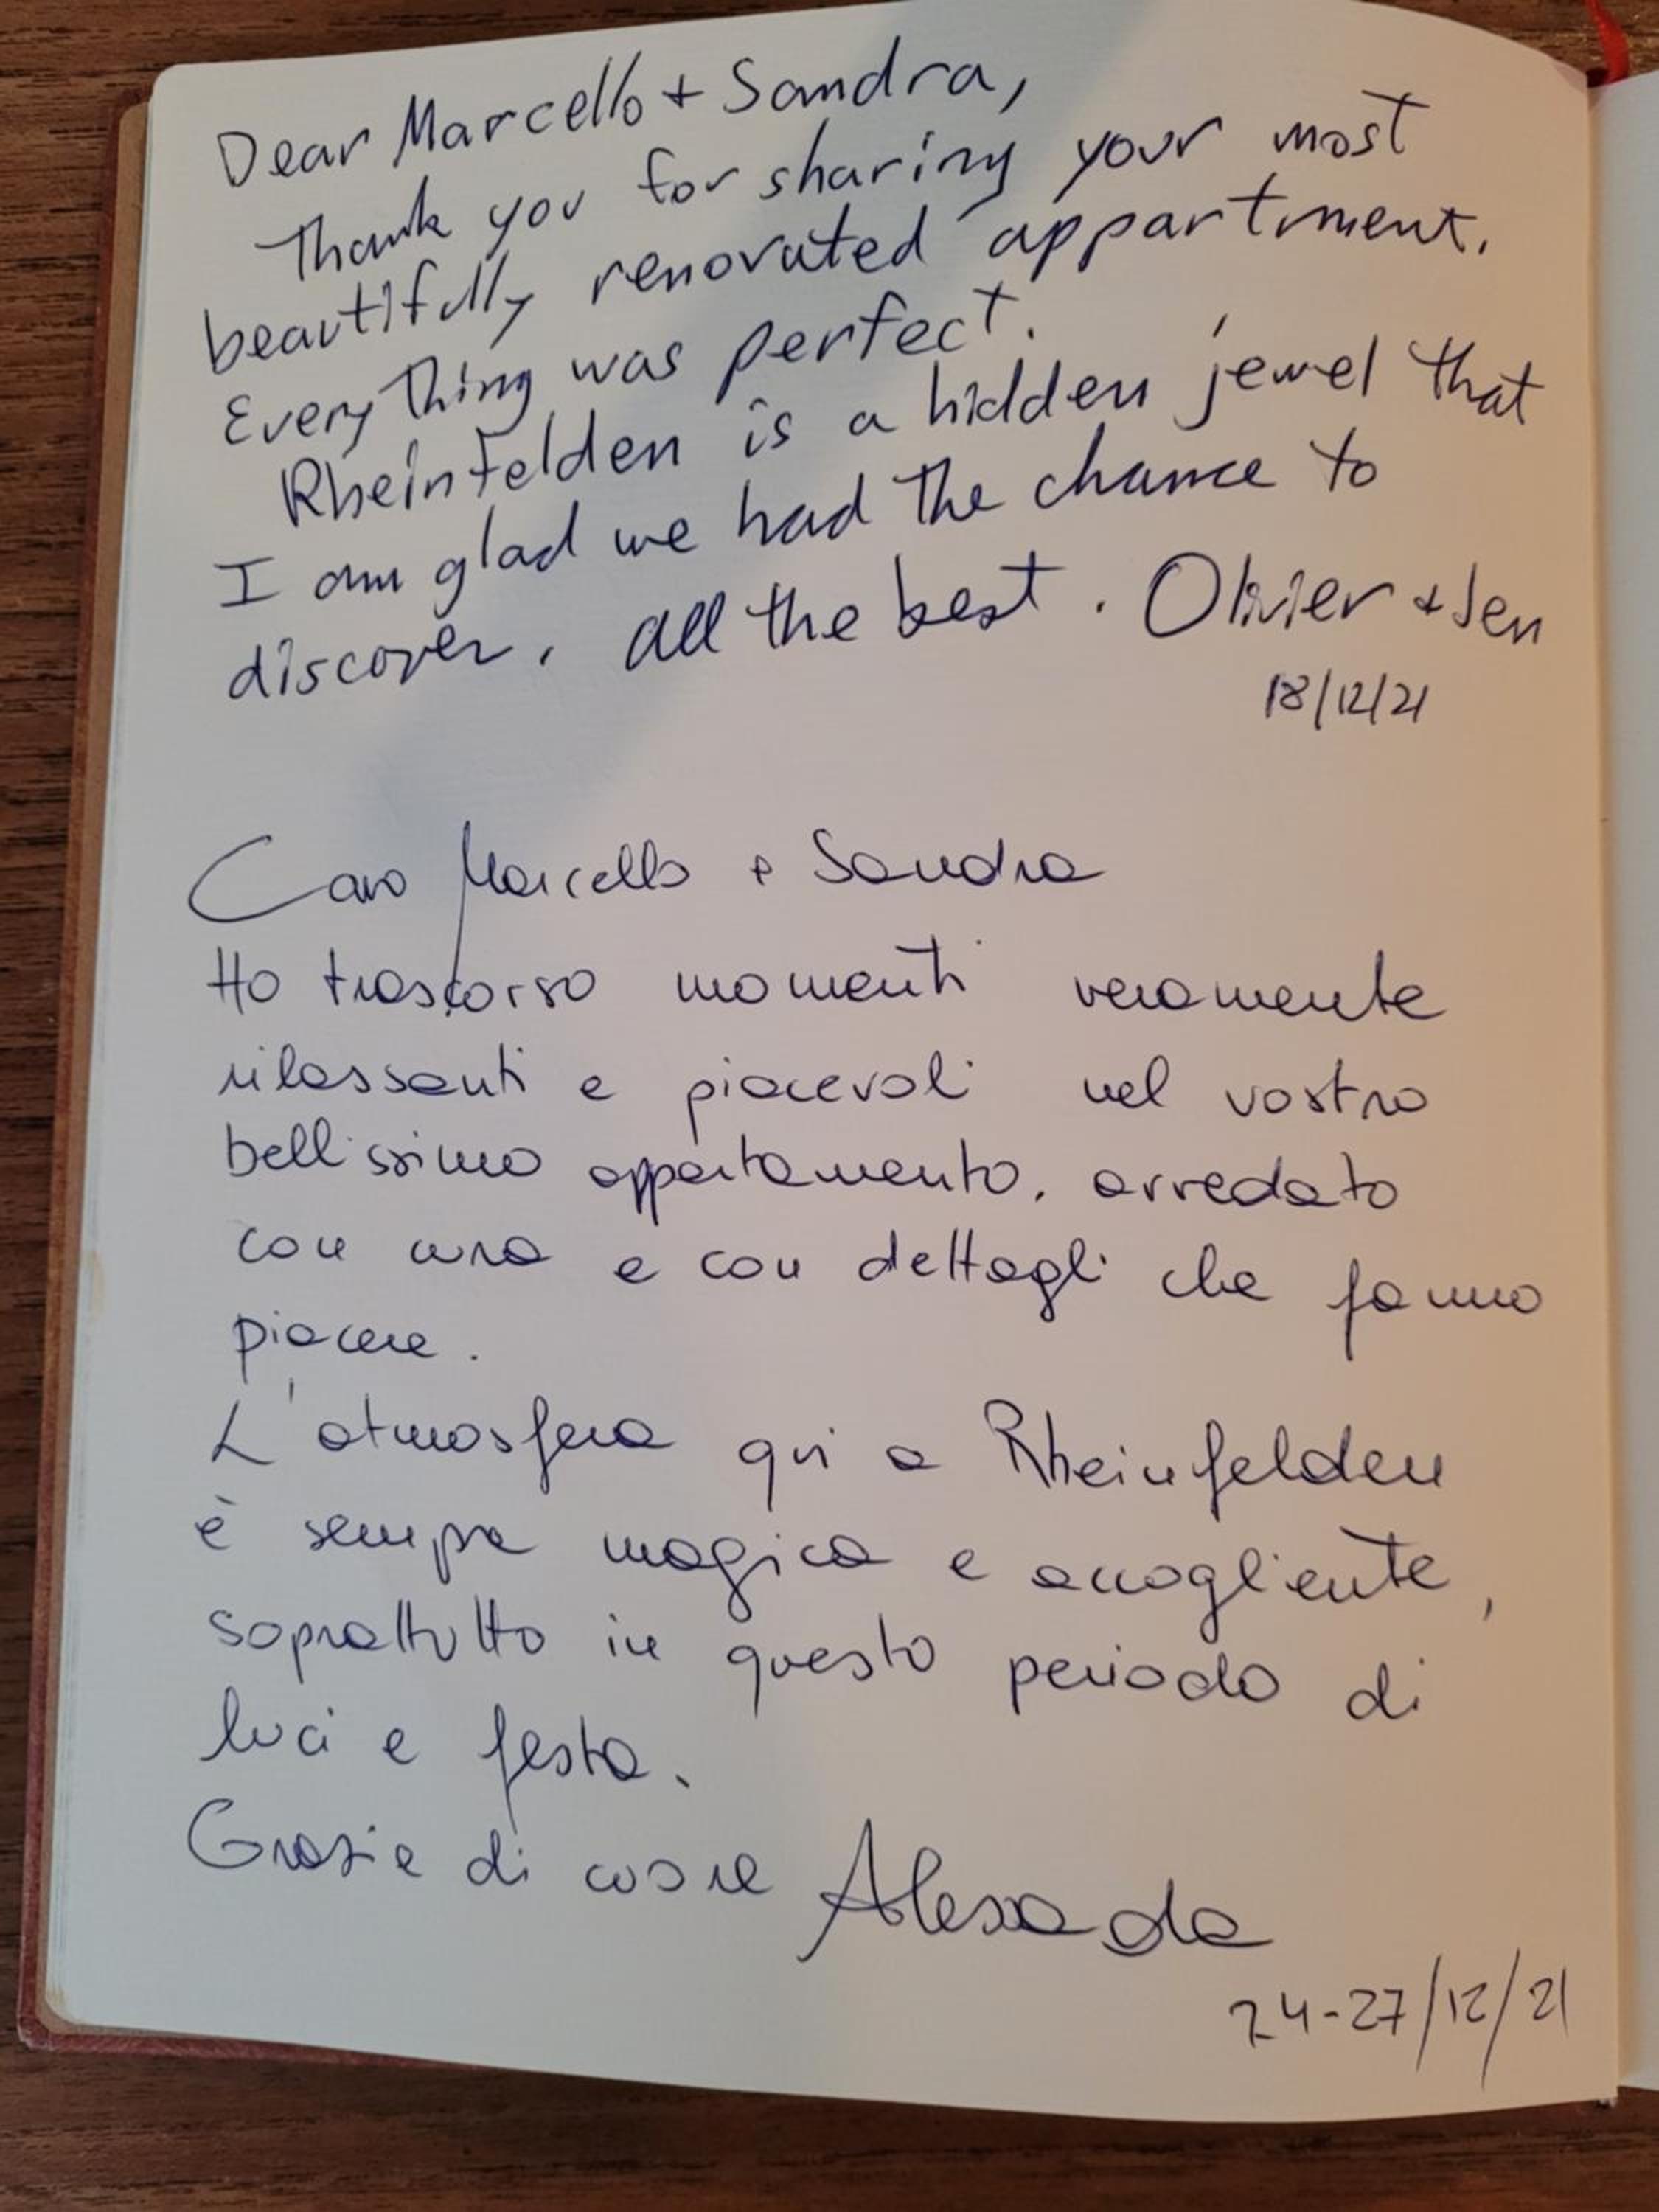 Dear Marcello + Sandra,
Thank you for sharing your most
beautifully renovated appartment.
Everything was perfect.
Rheinfelden is a hidden jewel that
I am glad we had the chance to
discover. all the best. Olivier + Jen
18/12/21
Caro Marcello e Sandra
Ho trascorso momenti veramente
rilassanti e piacevoli nel vostro
bellissimo appartamento, arredato
con cura e con dettagli che fanno
piacere.
L'atmosfera qui a Rheinfelden
è sempre magica e accogliente,
soprattutto in questo periodo di
luci e festa.
Grazie di cuore
24-27/12/21